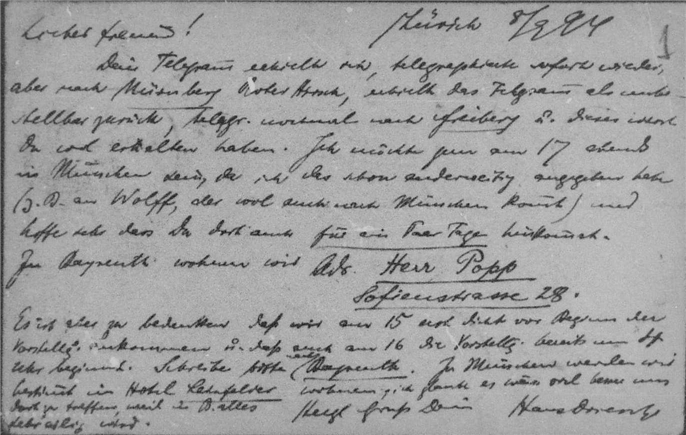 Lieber Freund! Zürich 8/8 94
1
Dein Telegram erhielt ich, telegraphierte sofort wieder,
aber nach Nürnberg Roter Hirsch, erhielt das Telgram als unbe-
stellbar zurück, telegr. nochmal nach Freiberg u. dieses wirst
Du wol erhalten haben. Ich möchte gern am 17 abends
in München sein, da ich das schon anderweitig angegeben habe
(z. B. an Wolff, der wol auch nach München komt) und
hoffe sehr dass Du dort auch für ein Paar Tage hinkomst.
In Bayreuth wohnen wir Adr. Herr Popp
Sofienstrasse 28.
Es ist aber zu bedenken daß wir am 15 erst dicht vor Beginn der
Vorstellg. ankommen u. daß auch am 16 die Vorstellg. bereits um 4
Uhr beginnt. Schreibe bitte nach Bayreuth. In München werden wir
bestimt im Hotel wohnen, ich glaube es wäre wol besser uns
dort zu treffen, weil in B. alles
sehr eilig wird. Herzl Gruß Dein Hans